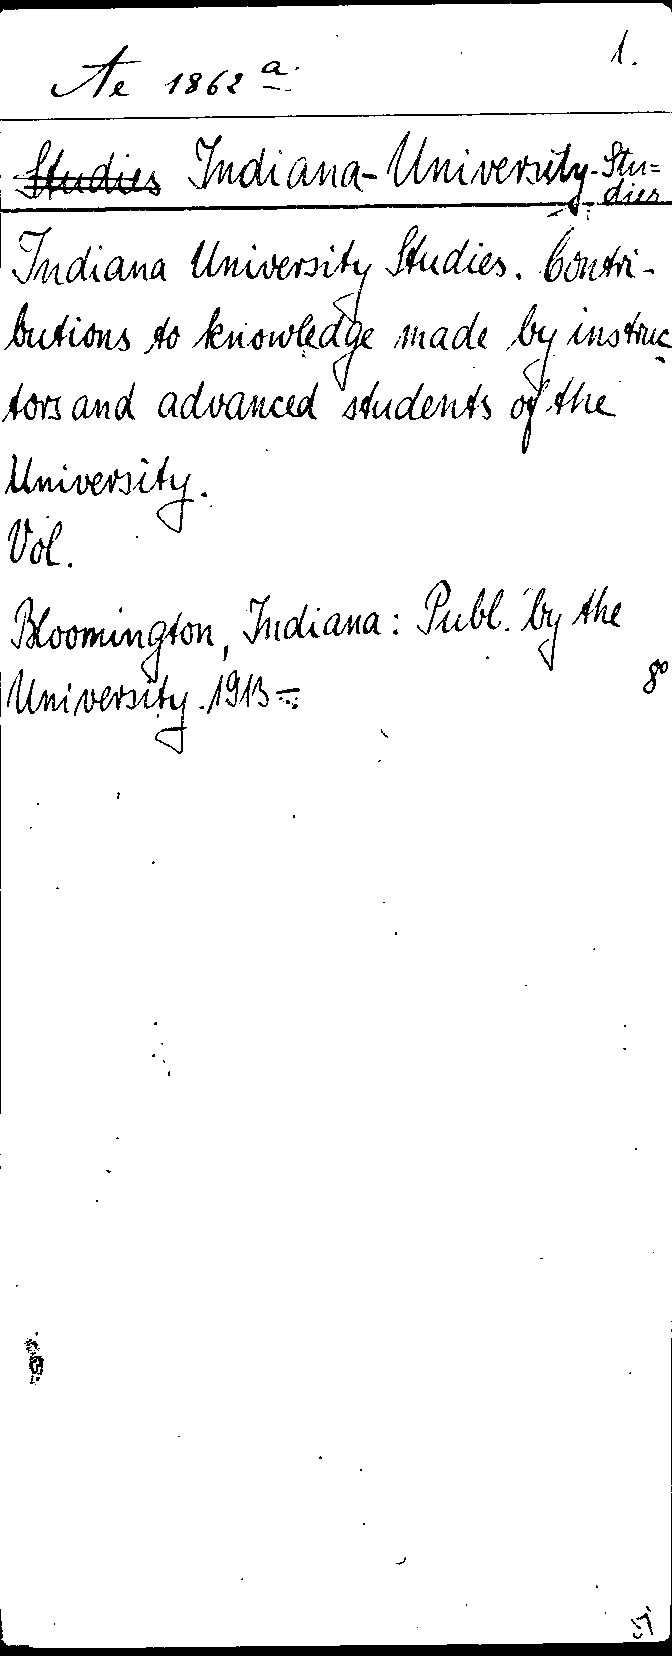 Ae 1862 a.
1.
Studies Indiana-University-Stu=
dies
Indiana University Studies. Contri-
butions to knowledge made by instruc-
tors and advanced students of the
University.
Vol.
Bloomington, Indiana: Publ. by the
University. 1913-
8°